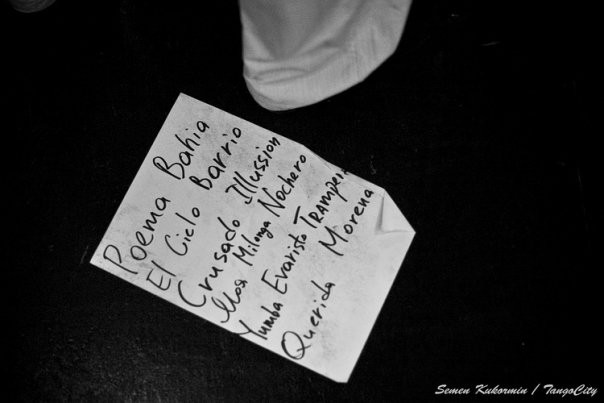 Poema Bahia
El Cielo Barrio
Crusado Illussion
Una Milonga Nochero
Yumba Evaristo TRAMPERA
Querida Morena
Semen Kukormin / TangoCity